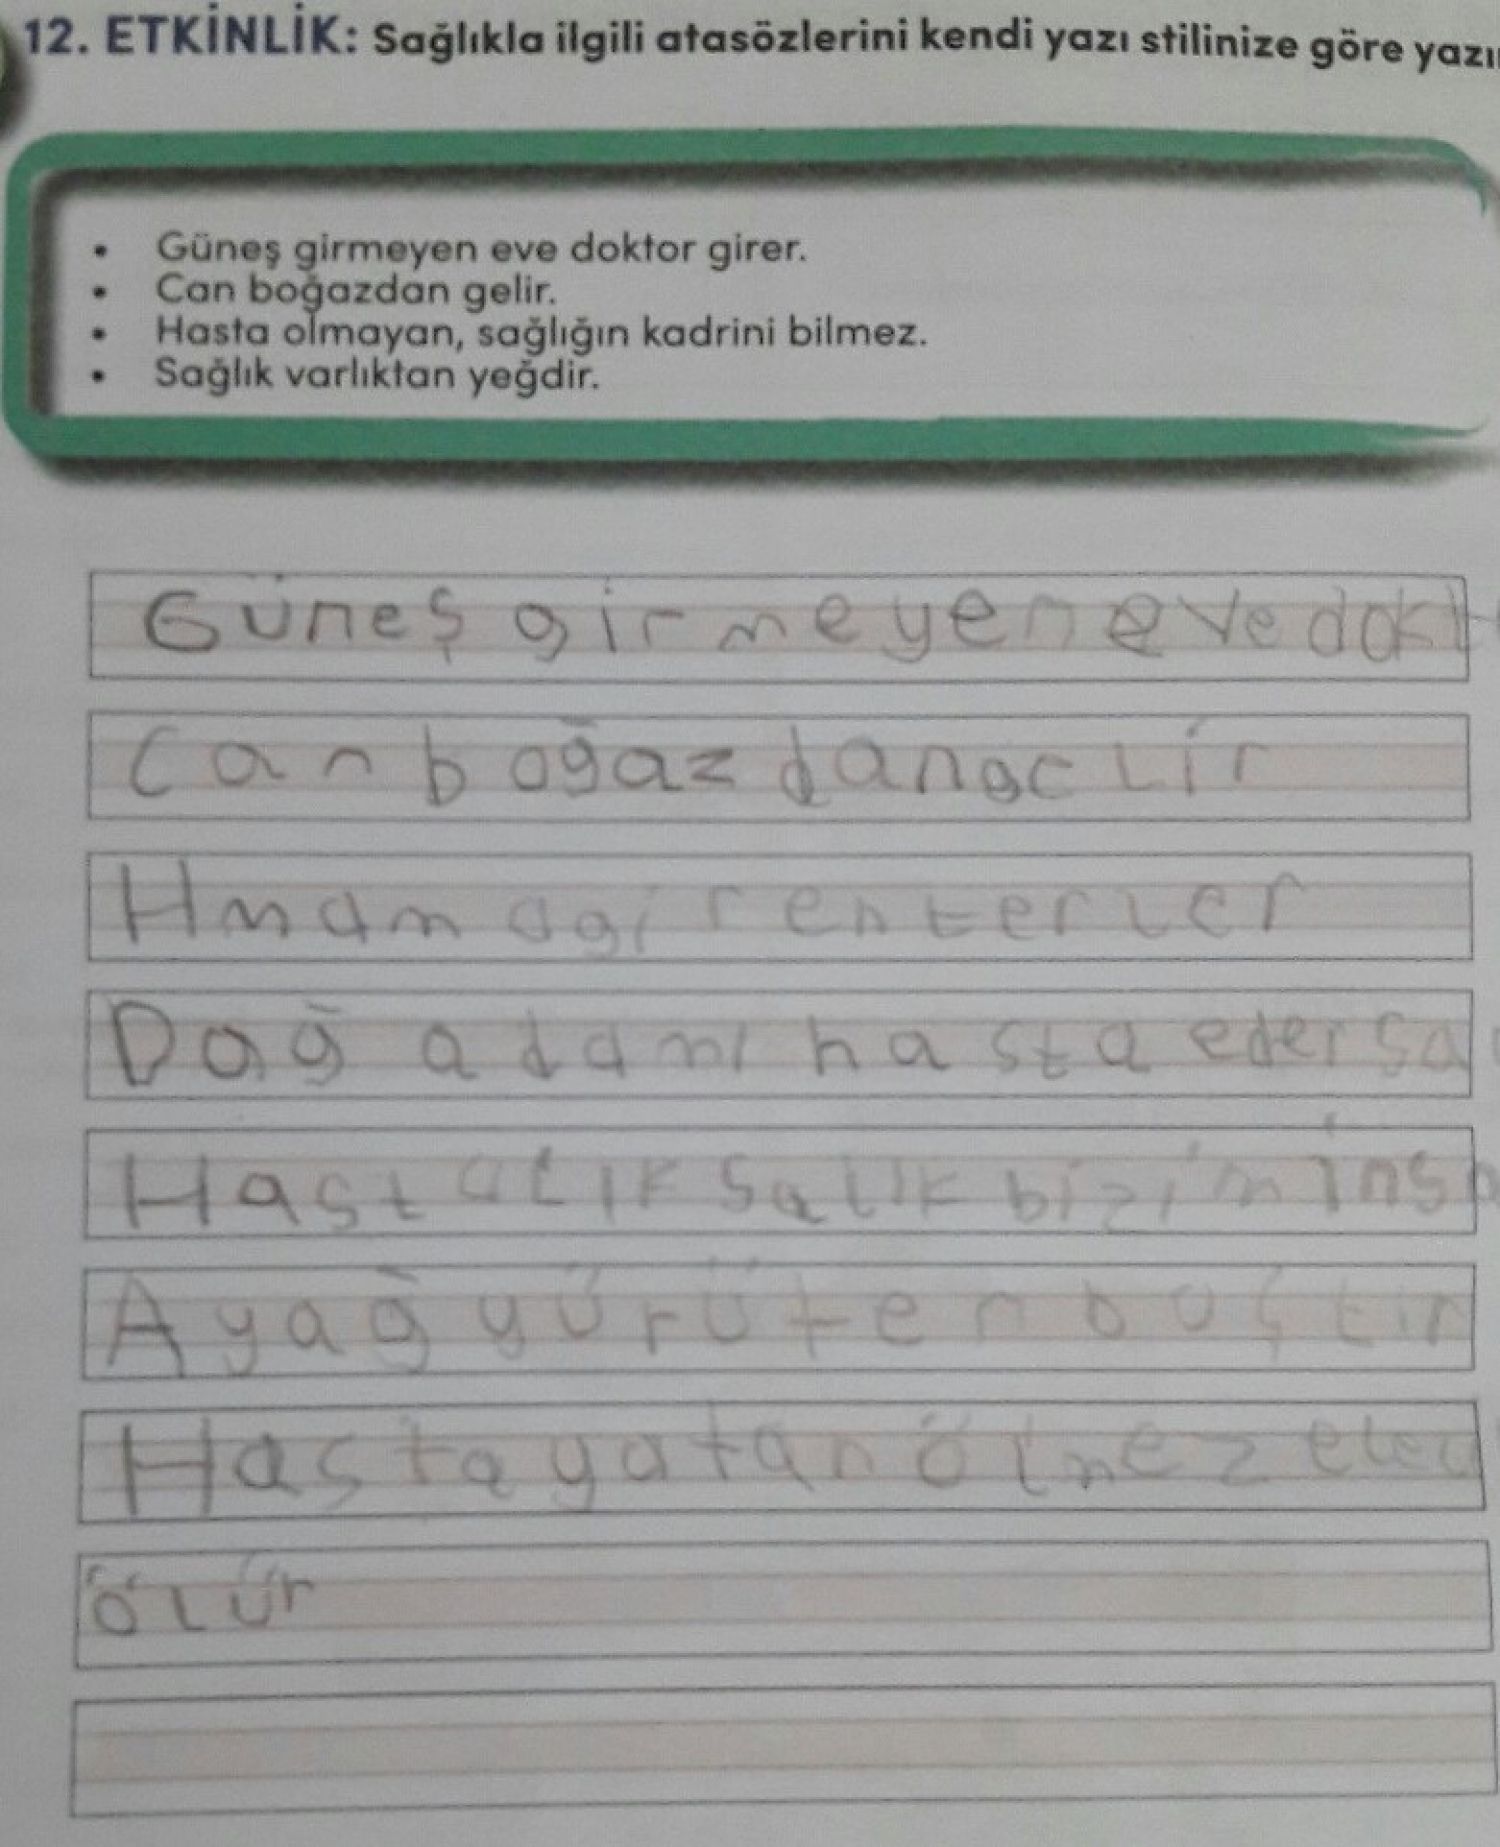 12. ETKİNLİK: Sağlıkla ilgili atasözlerini kendi yazı stilinize göre yazı
• Güneş girmeyen eve doktor girer.
• Can boğazdan gelir.
• Hasta olmayan, sağlığın kadrini bilmez.
• Sağlık varlıktan yeğdir.
Güneş girmeyen eve dokt
Can boğazdan gelir
Hmama giren terler
Dağ adamı hasta eder sa
Hastalık salık bizim insa
Ayağ yürüten
Hasta yatan ölmez
ölür